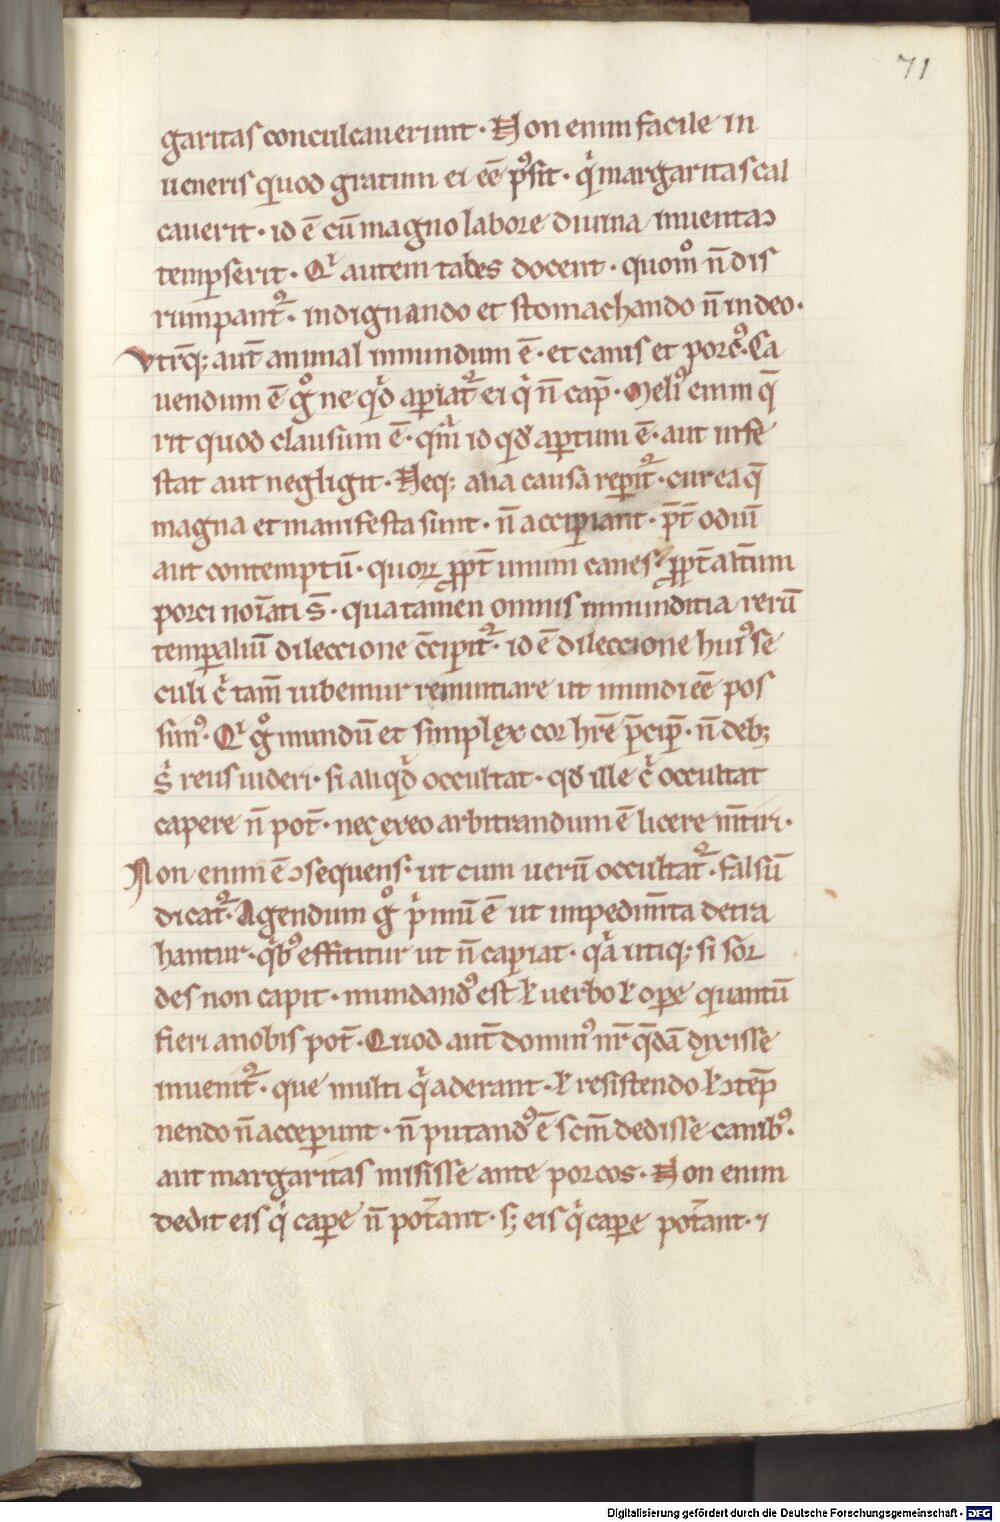 71
garitas conculcauerunt · Non enim facile in
ueneris quod gratum ei eē p̄ꝰsit · qͥ margaritas cal
cauerit · id ē cū magno labore diuina inuenta ↄ
tempserit · Qͥ autem tales docent · quomͦ n̄ dis
rumpantᷣ · indignando et stomachando n̄ indeo ·
Vtrq; aut̄ animal inmundum ē · et canis et porcꝰ · Ca
uendum ē gͦ ne qͥd aperiatᷣ ei qͥ n̄ cap̄ · Meliꝰ enim q̄
rit quod clausum ē · qͣm id qd̄ aꝑtum ē · aut infe
stat aut negligit · Neq; alia causa reperitᷣ · cur ea q̄
magna et manifesta sunt · n̄ accipiant · p̄t odiū
aut contemptū · quoꝝ ꝓpt̄ unum canes · ꝓpt̄ alt̄um
porci noīati s̄ · qua tamen omnis inmunditia rerū
temꝑaliū dileccione c̄cipitᷣ · id ē dileccione huiꝰ se
culi cͥ tam̄ iubemur renuntiare ut mundi eē pos
simꝰ · Qͥ gͦ mundū et simplex cor hr̄e p̄cip̄ · n̄ deb;
sͥ reus uideri · si aliqͥd occultat · qd̄ ille cͥ occultat
capere n̄ pot̄ · nec exeo arbitrandum ē licere m̄tiri ·
Non enim ē ↄsequens · ut cum uerū occultatᷣ · falsū
dicatᷣ · Agendum gͦ pͥmū ē ut impedim̄ta detra
hantur · qͥbꝰ effititur ut n̄ capiat · qͣ utiq; si sor
des non capit · mundandꝰ est ł uerbo ł oꝑe quantū
fieri anobis pot̄ · Quod aut̄ dominꝰ nr̄ q̄dā dixisse
inuenitᷣ · que multi qͥ aderant · ł resistendo ł ↄtēp
nendo n̄ acceperunt · n̄ putandꝰ ē scm̄ dedisse canibꝰ ·
aut margaritas misisse ante porcos · Non enim
dedit eis qͥ caꝑe n̄ pot̄ant · s; eis qͥ caꝑe pot̄ant · ⁊
Digitalisierung gefördert durch die Deutsche Forschungsgemeinschaft · DFG